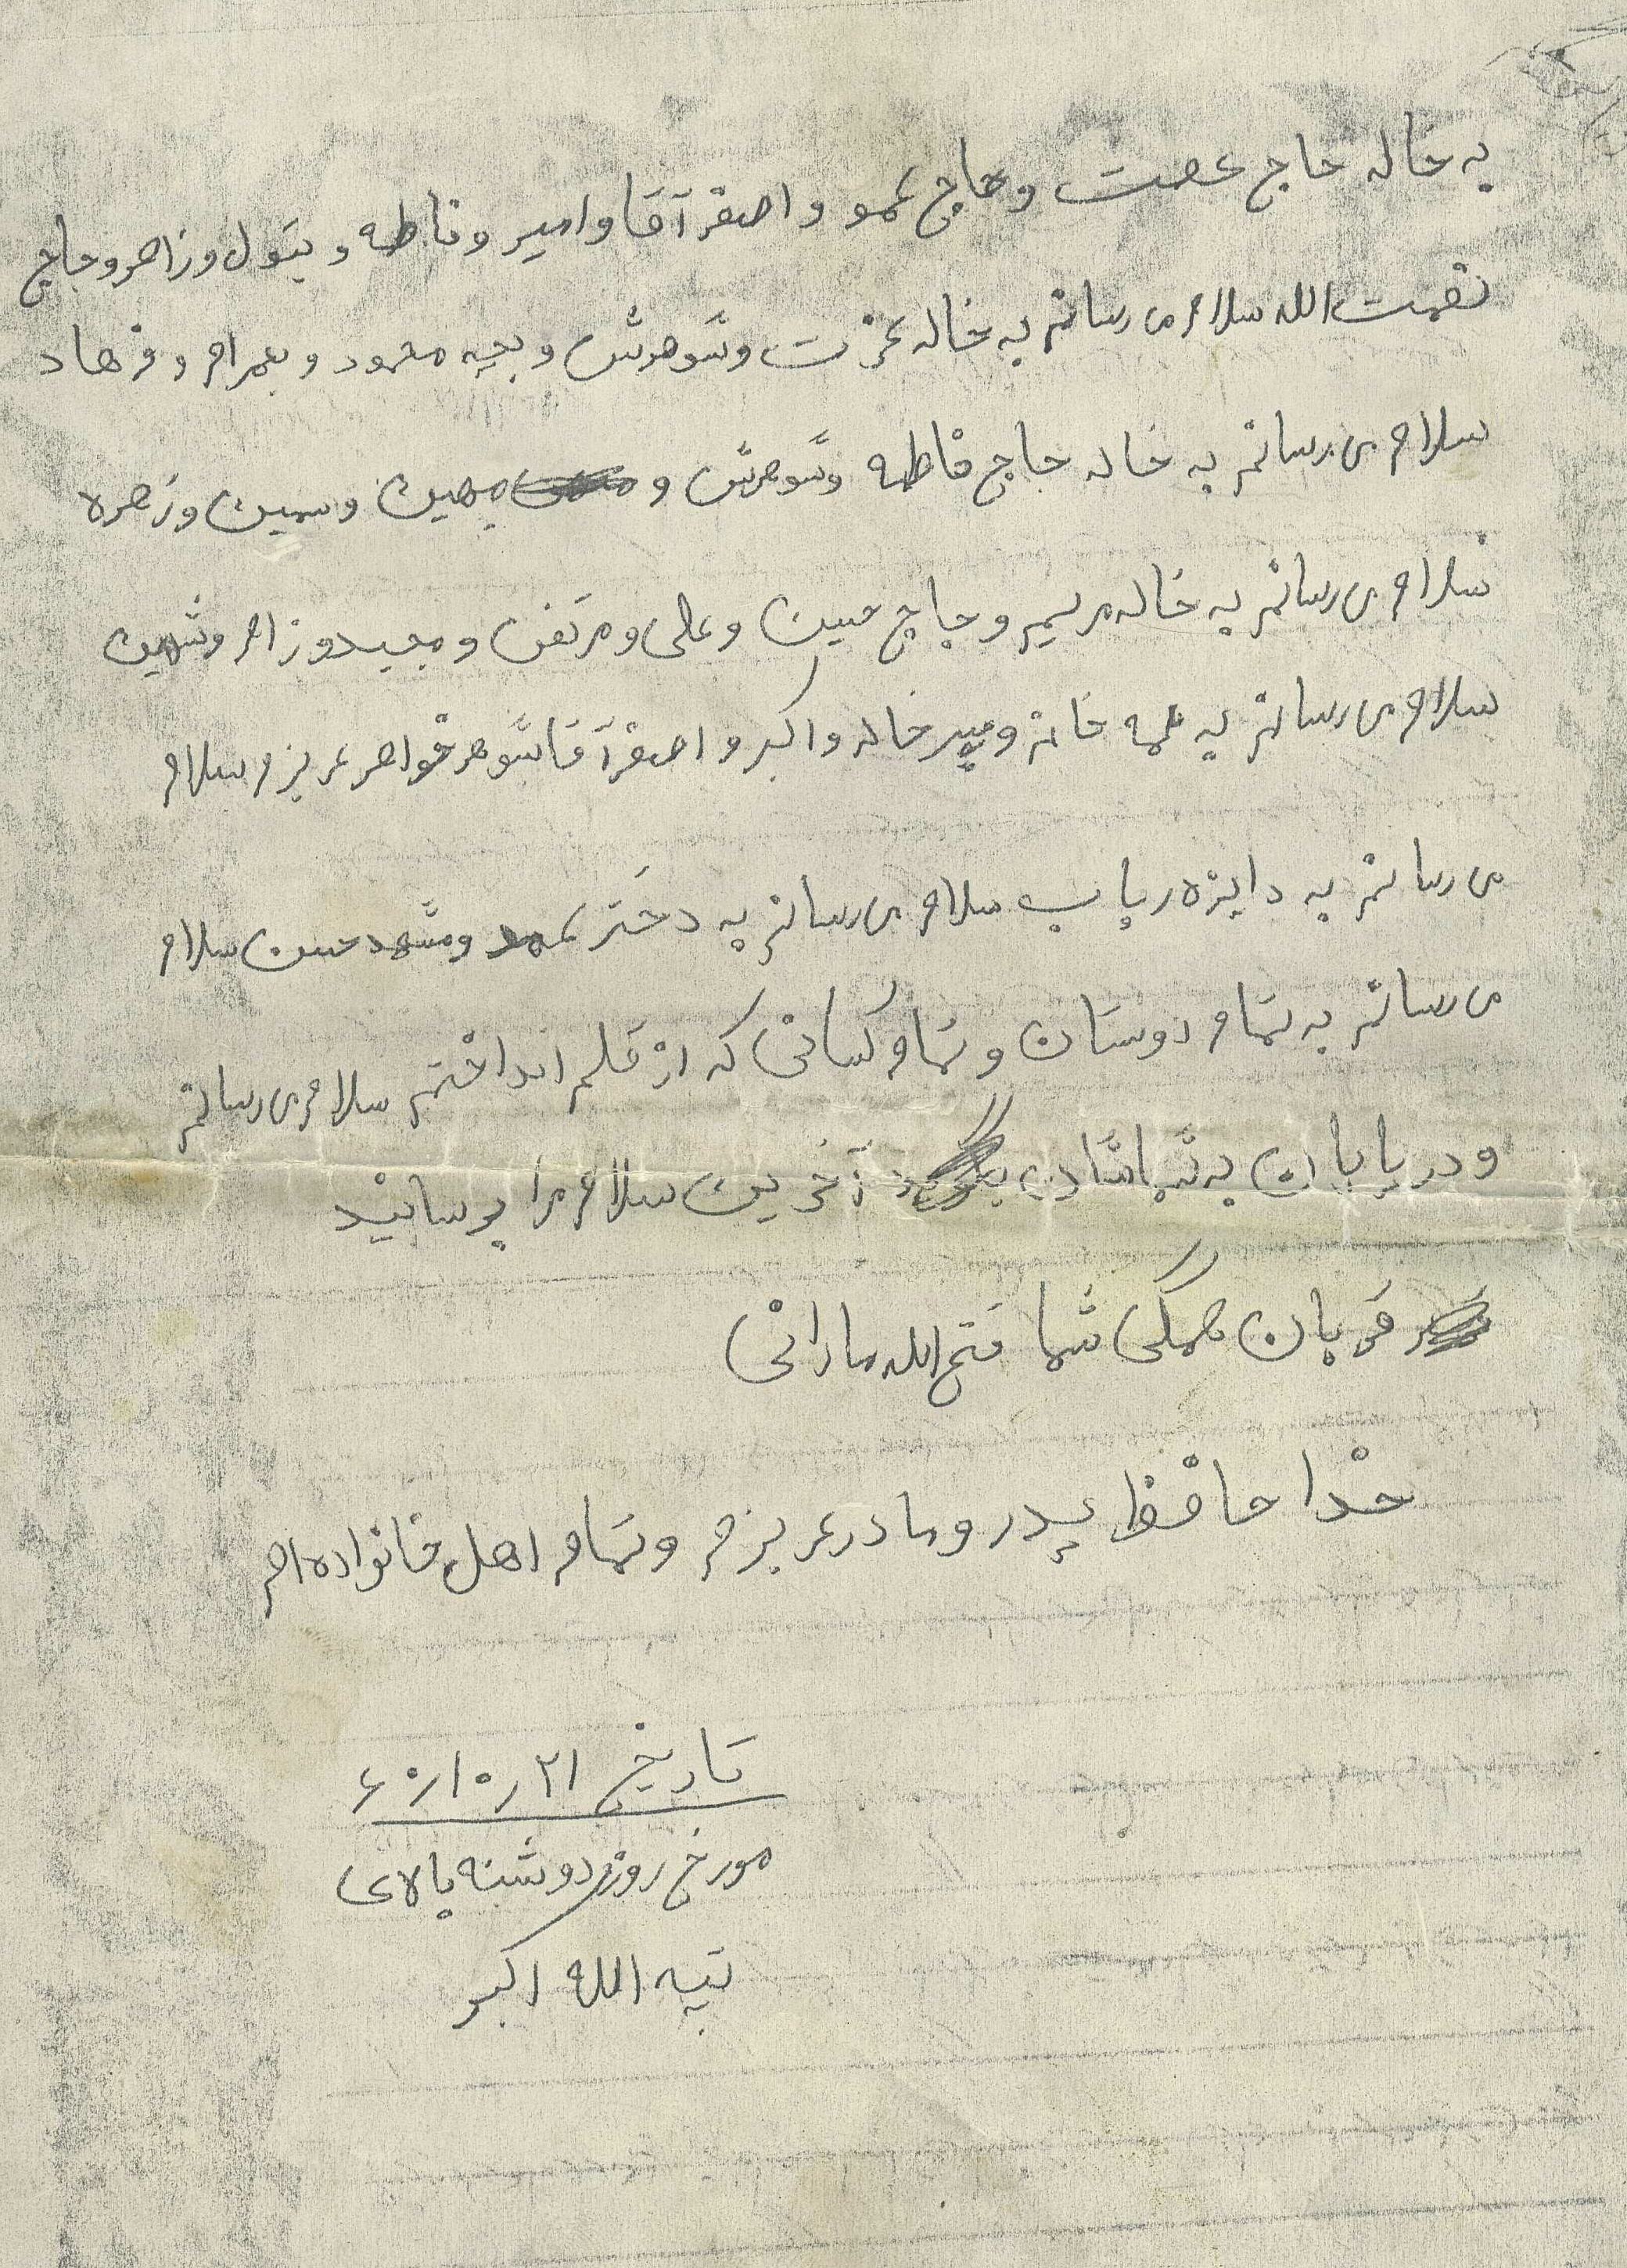 به خاله حاج عصمت و حاج عمو و اصغر آقا و امیر و فاطمه و بتول و زاهر و حاج
نعمت الله سلام می رسانم به خاله عزت و شوهرش و بچه محمود و بهرام و فرهاد
سلام می رسانم به خاله حاج فاطمه و شوهرش و مهین و سمین و زهره
سلام می رسانم به خاله مریم و حاج حسین و علی و مرتضی و مجید و زاهر و شهین
سلام می رسانم به عمه خانم و پسر خاله و اکبر و اصغر آقا شوهر خواهر عزیزم سلام
می رسانم به دایزه رباب سلام می رسانم به دختر عمه و مشهد حسن سلام
می رسانم به تمام دوستان و تمام کسانی که از قلم انداختم سلام می رسانم
و در پایان به آخرین سلام مرا برسانید
قربان همگی شما فتح الله مارانی
خدا حافظ پدر و مادر عزیزم و تمام اهل خانواده ام
تاریخ ۶۰/۱۰/۲۱
مورخ روز دوشنبه بالای
تپه الله اکبر